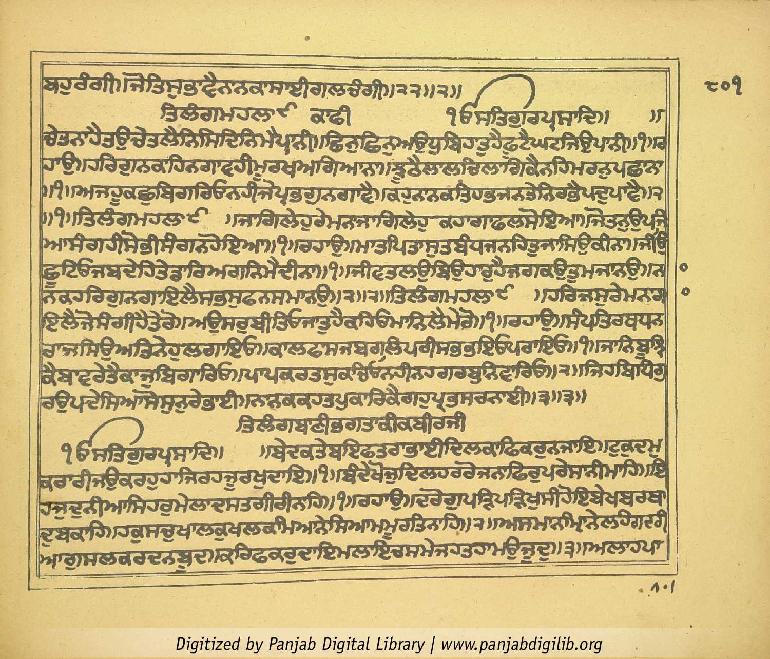 ਬਹੁਰੰਗੀ॥ਜੋਤਿਸੁਭਾਵੈਨਨਕਾਸਾਈਗਲਚੰਗੀ॥੨੨॥੨॥
੮੦੧
ਤਿਲੰਗਮਹਲਾ੯ ਕਾਫੀ ੴਸਤਿਗੁਰਪ੍ਰਸਾਦਿ॥ ॥
ਚੇਤਨਾਹੈਤਉਚੇਤਲੈਨਿਸਿਦਿਨਿਮੈਪ੍ਰਾਨੀ॥ਛਿਨੁਛਿਨੁਅਉਧਬਿਹਾਤੁਹੈਫੂਟੈਘਟਜਿਉਪਾਨੀ॥੧॥ਰ
ਹਾਉ॥ਹਰਿਗੁਨਕਾਹਿਨਗਾਵਹੀਮੂਰਖਅਗਿਆਨਾ॥ਝੂਠੈਲਾਲਚਿਲਾਗਿਕੈਨਹਿਮਰਨੁਪਛਾਨਾ
॥੧॥ਅਜਹੂਕਛੁਬਿਗਰਿਓਨਹੀਜੋਪ੍ਰਭਗੁਨਗਾਵੈ॥ਕਹੁਨਾਨਕਤਿਹਭਜਨਤੇਨਿਰਭੈਪਦੁਪਾਵੈ॥੨
॥੧॥ਤਿਲੰਗਮਹਲਾ੯ ॥ਜਾਗਿਲੇਹੁਰੇਮਨਜਾਗਿਲੇਹੁ ਕਹਾਗਾਫਲਸੋਇਆ॥ਜੋਤਨੁਉਪਜਿ
ਆਸੰਗਹੀਸੋਭੀਸੰਗਿਨਹੋਇਆ॥੧॥ਰਹਾਉ॥ਮਾਤਪਿਤਾਸੁਤਬੰਧਜਨਹਿਤੁਜਾਸਿਉਕੀਨਾ॥ਜੀਉ
ਛੂਟਿਓਜਬਦੇਹਤੇਡਾਰਿਅਗਨਿਮੈਦੀਨਾ॥੧॥ਜੀਵਤਲਉਬਿਉਹਾਰੁਹੈਜਗਕਉਤੁਮਜਾਨਉ॥ਨਾ
ਨਕਹਰਿਗੁਨਗਾਇਲੈਸਭਸੁਫਨਸਮਾਨਉ॥੨॥੨॥ਤਿਲੰਗਮਹਲਾ੯ ॥ਹਰਿਜਸੁਰੇਮਨਗਾ
ਇਲੈਜੋਸੰਗੀਹੈਤੇਰੋ॥ਅਉਸਰੁਬੀਤਿਓਜਾਤੁਹੈਕਹਿਓਮਾਨਿਲੈਮੇਰੋ॥੧॥ਰਹਾਉ॥ਸੰਪਤਿਰਥਧਨ
ਰਾਜਸਿਉਅਤਿਨੇਹੁਲਗਾਇਓ॥ਕਾਲਫਾਸਜਬਗਲਿਪਰੀਸਭਭਇਓਪਰਾਇਓ॥੧॥ਜਾਨਿਬੂਝਿ
ਕੈਬਾਵਰੇਤੈਕਾਜੁਬਿਗਾਰਿਓ॥ਪਾਪਕਰਤਸੁਕਚਿਓਨਹੀਨਹਗਰਬੁਨਿਵਾਰਿਓ॥੨॥ਜਿਹਬਿਧਿਗੁ
ਰਉਪਦੇਸਿਆਸੋਸੁਨੁਰੇਭਾਈ॥ਨਾਨਕਕਹਤਪੁਕਾਰਿਕੈਗਹੁਪ੍ਰਭਸਰਨਾਈ॥੩॥੩॥
ਤਿਲੰਗਬਾਣੀਭਗਤਾਕੀਕਬੀਰਜੀ
ੴਸਤਿਗੁਰਪ੍ਰਸਾਦਿ॥ ॥ਬੇਦਕਤੇਬਇਫਤਰਾਭਾਈਦਿਲਕਾਫਿਕਰੁਨਜਾਇ॥ਟੁਕੁਦਮੁ
ਕਰਾਰੀਜਉਕਰਹੁਹਾਜਿਰਹਜੂਰਖੁਦਾਇ॥੧॥ਬੰਦੇਖੋਜੁਦਿਲਹਰਰੋਜਨਾਫਿਰੁਪਰੇਸਾਨੀਮਾਹਿ॥ਇ
ਹਜੁਦੁਨੀਆਸਿਹਰੁਮੇਲਾਦਸਤਗੀਰੀਨਾਹਿ॥੧॥ਰਹਾਉ॥ਦਰੋਗੁਪੜਿਪੜਿਖੁਸੀਹੋਇਬੇਖਬਰਬਾ
ਦੁਬਕਾਹਿ॥ਹਕੁਸਚੁਖਾਲਕੁਖਲਕਮਿਆਨੇਸਿਆਮਮੂਰਤਿਨਾਹਿ॥੨॥ਅਸਮਾਨਮ੍ਯਿਾਨੇਲਹੰਗਦਰੀ
ਆਗੁਸਲਕਰਦਨਬੂਦ॥ਕਰਿਫਕਰੁਦਾਇਮਲਾਇਚਸਮੇਜਹਤਹਾਮਉਜੂਦੁ॥੩॥ਅਲਾਹਪਾ
੮੦੧
Digitized by Panjab Digital Library | www.panjabdigilib.org